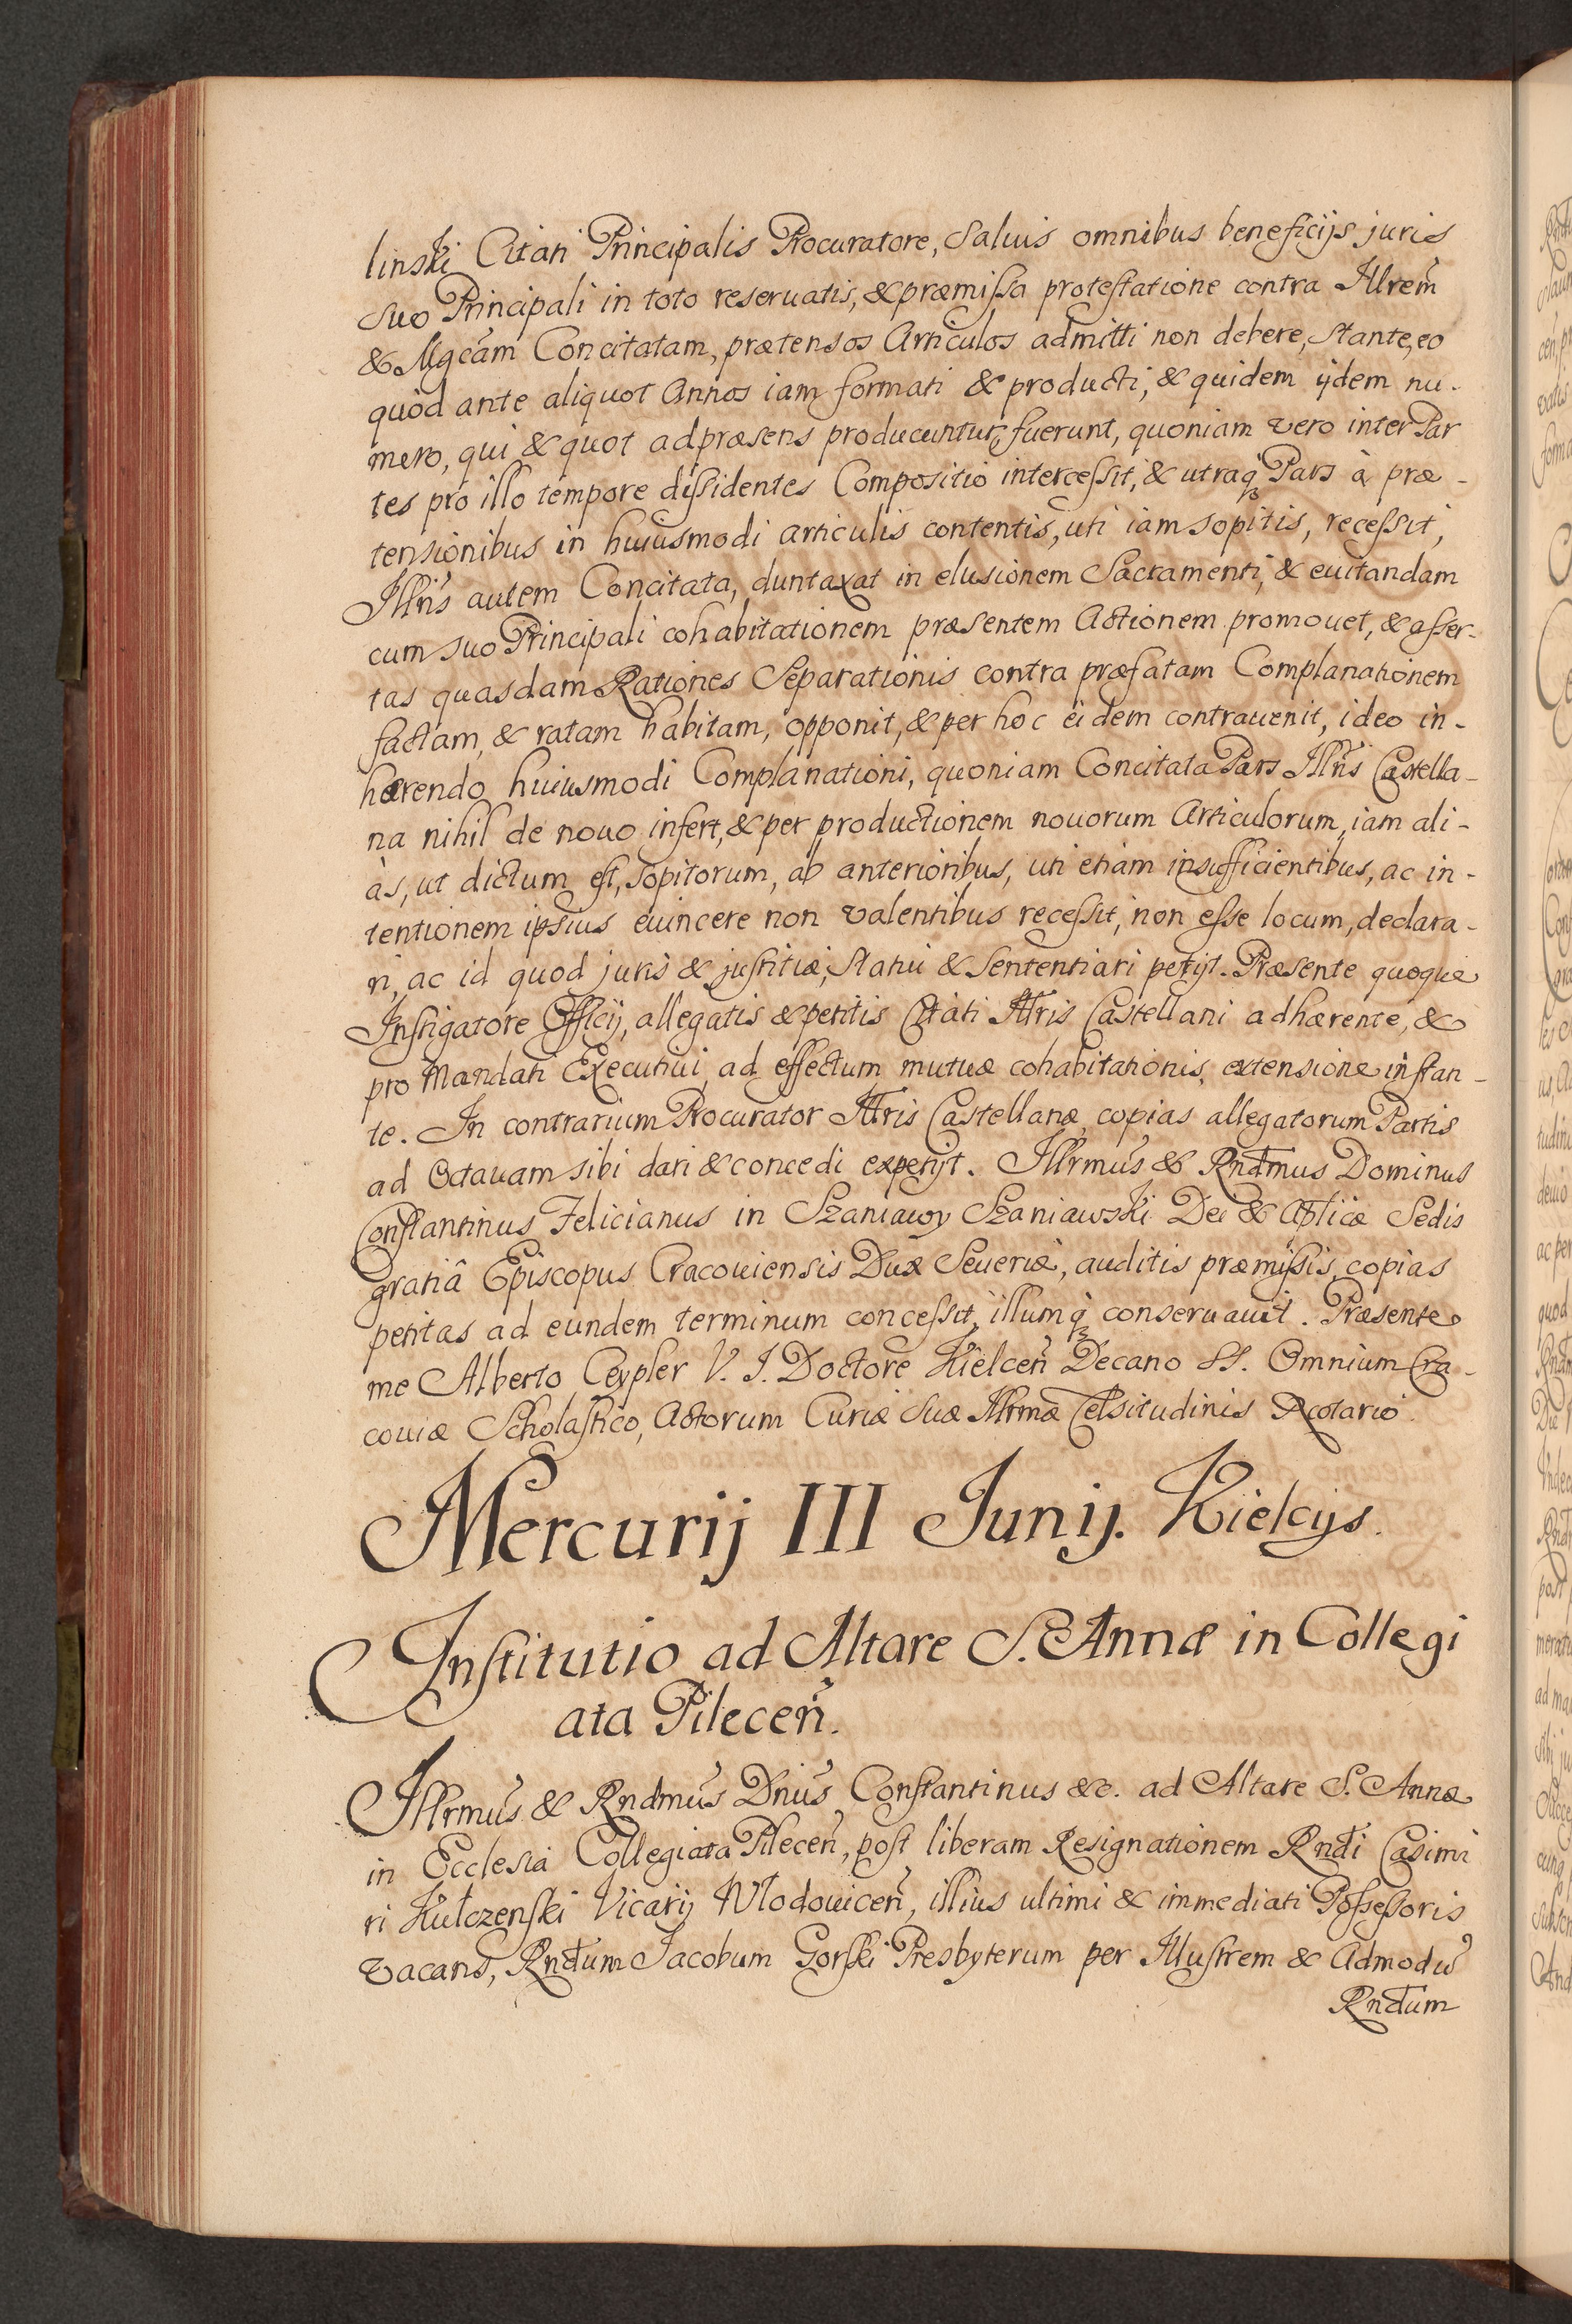 linski Citati Principalis Procuratore, Saluis omnibus beneficijs juris
suo Principali in toto reseruatis, & præmissa protestatione contra Illrem̃
& Mgcãm Concitatam, prætensos Articulos admitti non debere, stante, eo
quòd ante aliquot Annos iam formati & producti, & quidem ijdem nu-
mero, qui & quot ad præsens producuntur, fuerunt, quoniam vero inter Par
tes pro illo tempore dissidentes Compositio intercessit, & utraq; Pars à præ-
tensionibus in huiusmodi articulis contentis, uti iam sopitis, recessit,
Illris autem Concitata, duntaxat in elusionem Sacramenti, & euitandam
cum suo Principali cohabitationem præsentem Actionem promouet, & asser-
tas quasdam Rationes Separationis contra præfatam Complanationem
factam, & ratam habitam, opponit, & per hoc eidem contrauenit, ideo in-
hærendo huiusmodi Complanationi, quoniam Concitata Pars Illris Castella-
na nihil de nouo infert, & per productionem nouorum Articulorum, iam ali-
às, ut dictum est, sopitorum, ab anterioribus, uti etiam insufficientibus, ac in-
tentionem ipsius euincere non valentibus recessit, non esse locum, declara-
ri, ac id quod juris & justitiæ, statui & sententiari petijt. Præsente quoque
Instigatore Officij, allegatis & petitis Citati Illris Castellani adhærente, &
pro Mandati Executiui, ad effectum mutuæ cohabitationis, extensione instan-
te. In contrarium Procurator Illris Castellanæ, copias allegatorum Partis
ad Octauam sibi dari & concedi expetijt. Illrmus & Rndmus Dominus
Constantinus Felicianus in Szaniawy Szaniawski Dei & Aplicæ Sedis
gratiâ Episcopus Cracouiensis Dux Seueriæ, auditis præmissis, copias
petitas ad eundem terminum concessit, illumq; conseruauit. Præsente
me Alberto Ceypler V. I. Doctore Kielceñ Decano SS. Omnium Cra-
couiæ Scholastico, Actorum Curiæ Suæ Illrmæ Celsitudinis Notario.
Mercurij III Junij. Kielcijs.
Institutio ad Altare S. Annæ in Collegi
ata Pileceñ.
Illrmus & Rndmus Dnus Constantinus &c. ad Altare S. Annæ
in Ecclesiâ Collegiata Pileceñ, post liberam Resignationem Rndi Casimi
ri Kułczenski Vicarij Włodouiceñ, illius ultimi & immediati Possessoris
vacans, Rndum Jacobum Gorski Presbyterum per Illustrem & Admodũ
Rndum